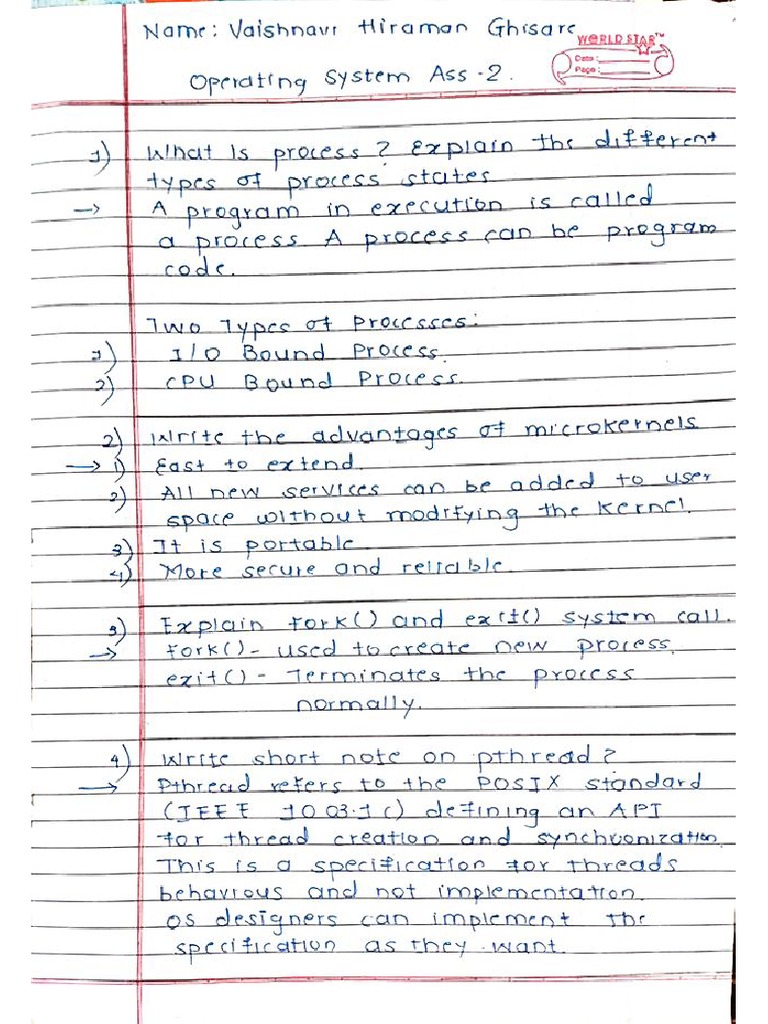 Name: Vaishnavi Hiraman Ghisare
WORLD STAR™
Date:
Page:
Operating System Ass-2.
1) What Is process? Explain the different
types of process states
→ A program in execution is called
a process A process can be program
code.
Two Types of Processes:
1) I/O Bound Process.
2) CPU Bound Process.
2) Write the advantages of microkernels
→ 1) East to extend.
2) All new services can be added to user
space without modifying the kernel.
3) It is portable
4) More secure and reliable.
3) Explain fork() and exit() system call.
→ fork() - used to create new process.
exit() - Terminates the process
normally.
4) Write short note on pthread?
→ Pthread refers to the POSIX standard
(IEEE 1003.1c) defining an API
for thread creation and synchronization.
This is a specification for threads
behavious and not implementation.
OS designers can implement the
specification as they want.